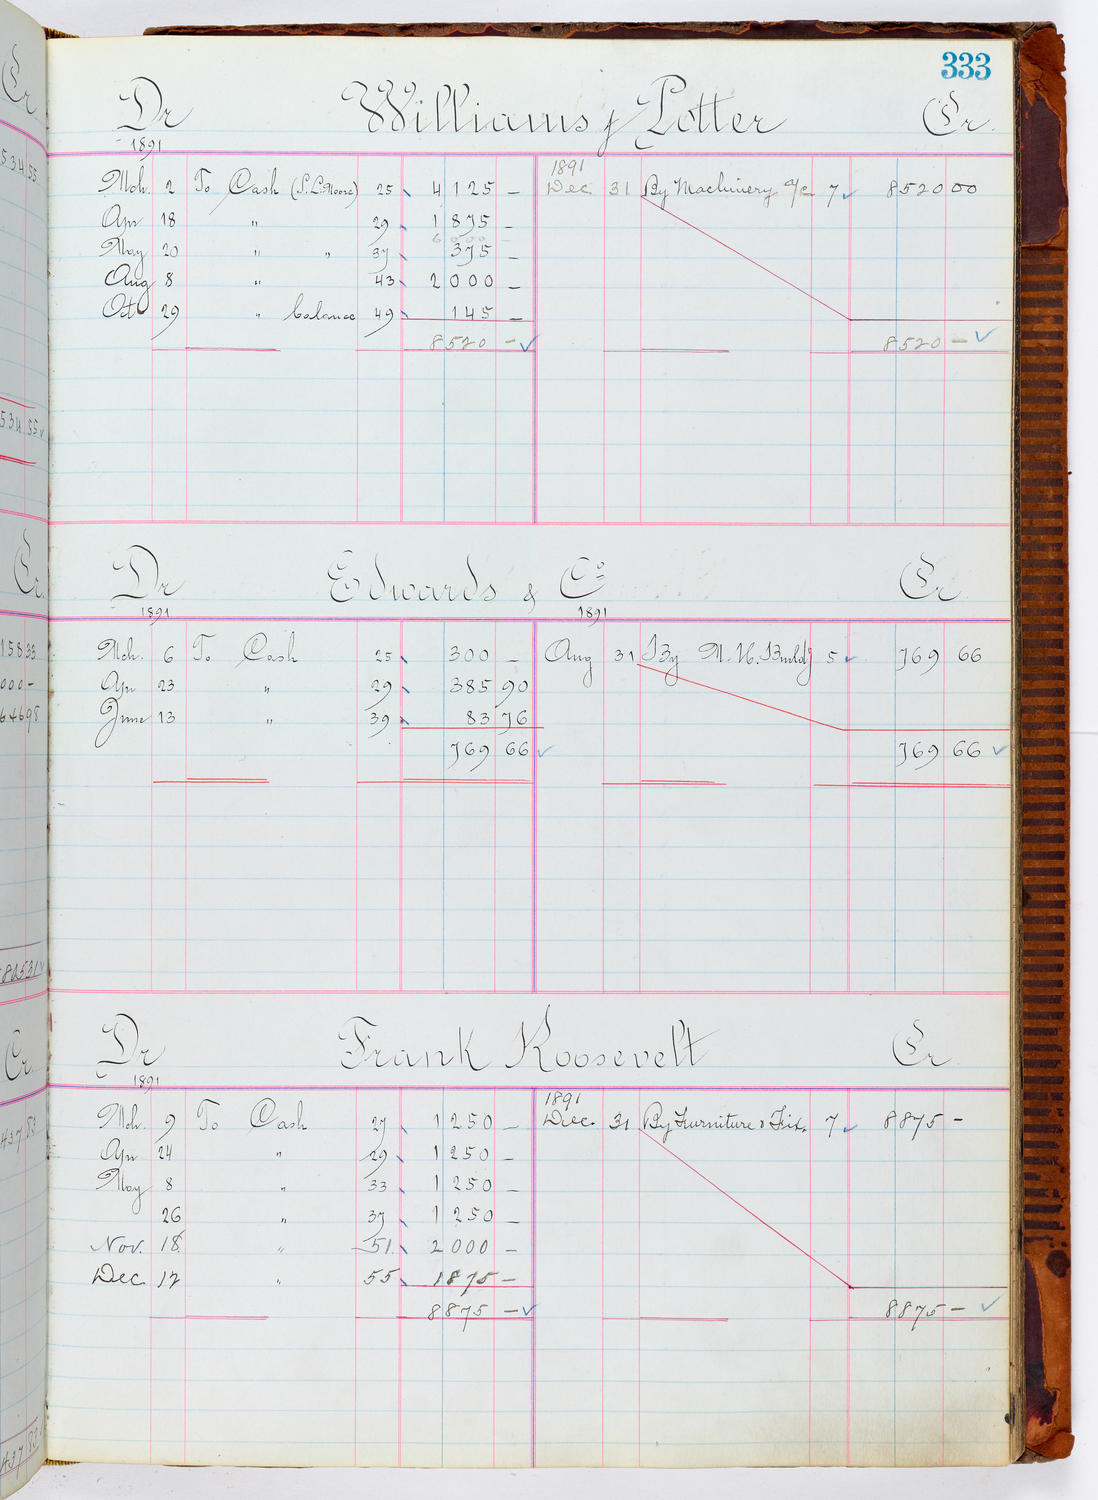 333
Dr Williams & Potter Cr.
1891
1891
Mch. 2 To Cash (S. L. Moore) 25 4125 — Dec 31 By Machinery a/c 7 8520 00
Apr 18 " 29 1875 —
May 20 " " 37 375 —
Aug 8 " 43 2000 —
Oct 29 " balance 49 145 —
8520 — 8520 —
Dr Edwards & Co Cr
1891 1891
Mch. 6 To Cash 25 300 — Aug 31 By M. H. Buildg 5 769 66
Apr 23 " 29 385 90
June 13 " 39 83 76
769 66 769 66
Dr Frank Roosevelt Cr
1891
1891
Mch. 9 To Cash 27 1250 — Dec. 31 By Furniture & Fix. 7 8875 —
Apr 24 " 29 1250 —
May 8 " 33 1250 —
26 " 37 1250 —
Nov. 18 " 51 2000 —
Dec 12 " 55 1875 —
8875 — 8875 —